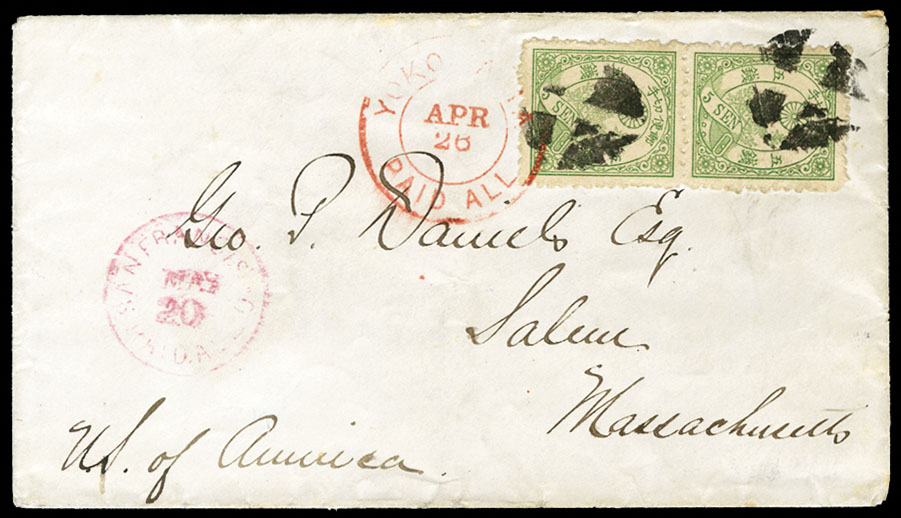 YOKO
APR
26
PAID ALL
5 SEN
五
錢
5 SEN
五
錢
Geo. P. Daniels Esq.
SAN FRANCISCO
MAY
20
PAID ALL
Salem
Massachusetts
U.S. of America.